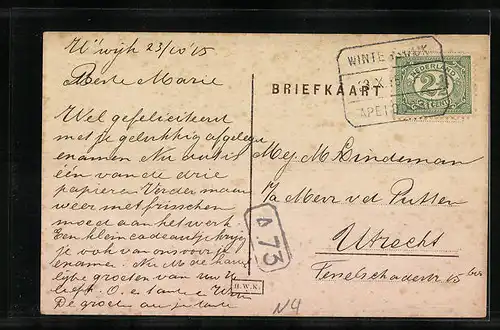 W'wijk 23/10 '15
Beste Marie
Wel gefeliciteerd
met je gelukkig afgelegd
examen Nu
één van de drie
papieren Verder maar
weer met frisschen
moed aan het werk
Een klein cadeautje krijg
je ook van ons voor je
examen. Nu M. de harte-
lijke groeten van uw
O. en tante
De groeten aan je tante
BRIEFKAART
WINTERSWIJK
APE
NEDERLAND
2½
CENT
Mej. M. Lindeman
p/a Mevr v d Putten
Utrecht
Tesselschadestr 15 bis
A 73
H.W.K.
N4